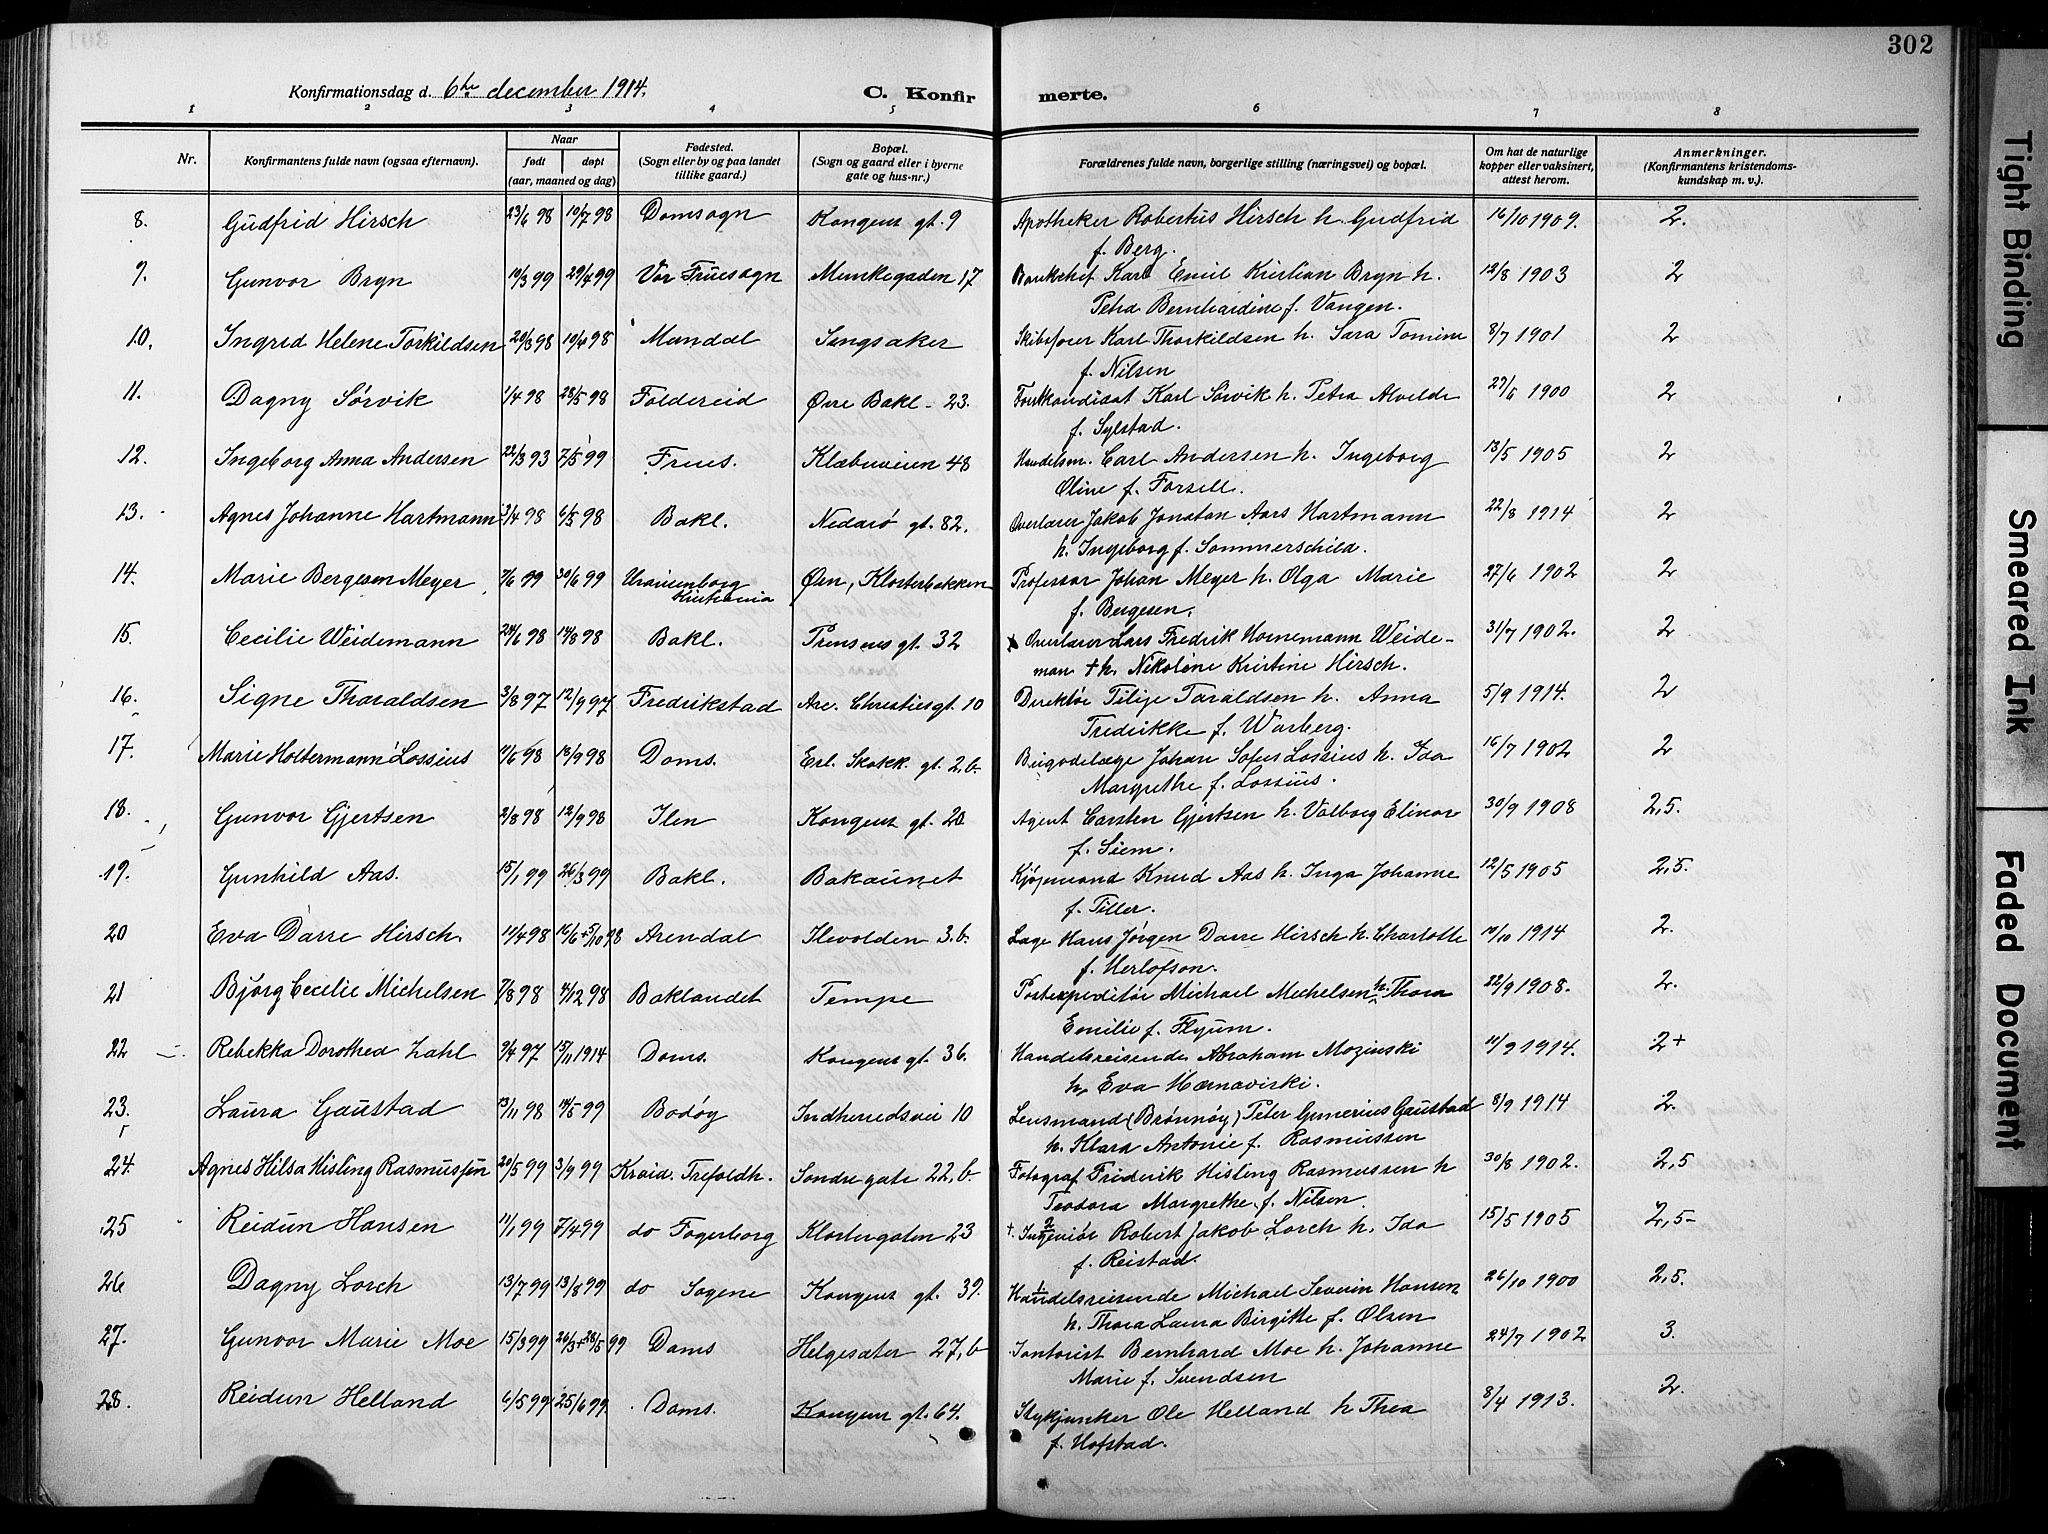 302
Konfirmationsdag d. 6te december 1914.
C. Konfirmerte.
1 2 3 4 5 6 7 8
Nr. Konfirmantens fulde navn (ogsaa efternavn). Naar født døpt (aar, maaned og dag) Fødested. (Sogn eller by og paa landet tillike gaard.) Bopæl. (Sogn og gaard eller i byerne gate og hus-nr.) Forældrenes fulde navn, borgerlige stilling (næringsvei) og bopæl. Om hat de naturlige kopper eller vaksinert, attest herom. Anmerkninger. (Konfirmantens kristendoms-kundskap m. v.).
8. Gudfrid Hirsch 23/6 98 10/7 98 Domsogn Kongens gt. 9 Apotheker Robertus Hirsch h. Gudfrid 16/10 1909. 2.
f. Berg.
9. Gunvor Bryn 10/3 99 29/4 99 Vor Fruesogn Munkegaden 17 Bankchef Karl Emil Kristian Bryn h. 12/8 1903 2
Petra Bernhardine f. Vangen.
10. Ingrid Helene Torkildsen 20/3 98 10/4 98 Mandal Singsaker Skibsfører Karl Thorkildsen h. Sara Tomine 8/7 1901 2
f. Nilsen
11. Dagny Sørvik 1/4 98 28/5 98 Foldereid Øvre Bakl. 23. Forstkandidat Karl Sørvik h. Petra Alvelde 29/6 1900 2
f. Sylstad.
12. Ingeborg Anna Andersen 22/3 93 7/5 99 Frues. Klæbuveien 48 Handelsm. Carl Andersen h. Ingeborg 13/5 1905 2
Oline f. Forsell.
13. Agnes Johanne Hartmann 3/4 98 6/5 98 Bakl. Nedarö gt. 82. Overlærer Jakob Jonatan Aars Hartmann 22/8 1914 2
h. Ingeborg f. Sommerschild.
14. Marie Bergesen Meyer 7/6 99 30/6 99 Uranienborg Kristiania Øvn, Klosterbakken Professor Johan Meyer h. Olga Marie 27/6 1902 2
f. Bergesen.
15. Cecilie Weidemann 24/6 98 14/8 98 Bakl. Prinsens gt. 32 Overlærer Lars Fredrik Hornemann Weide- 31/7 1902. 2
man + h. Nikoline Kristine Hirsch.
16. Signe Tharaldsen 3/8 97 12/9 97 Fredrikstad Are. Christiesgt. 10 Direktör Tilije Taraldsen h. Anna 5/9 1914. 2
Fredrikke f. Warberg.
17. Marie Holtermann Lossius 11/6 98 18/9 98 Doms. Erl. Skakk. gt. 2.b. Brigadelæge Johan Sofus Lossius h. Ida 16/7 1902 2
Margrethe f. Lossius.
18. Gunvor Gjertsen 2/8 98 12/9 98 Ilen Kongens gt. 20. Agent Carsten Gjertsen h. Valborg Elinor 30/9 1908 2,5.
f. Siem.
19. Gunhild Aas. 15/1 99 26/3 99 Bakl. Bakaunet Kjøpmand Knud Aas h. Inga Johanne 12/5 1905 2,5.
f. Tiller.
20 Eva Darre Hirsch. 11/4 98 16/6 + 5/10 98 Arendal Ilevolden 3.b. Læge Hans Jørgen Darre Hirsch h. Charlotte 10/10 1914 2.
f. Herlofson.
21 Bjørg Cecilie Michelsen 7/8 98 4/12 98 Baklandet Tempe Postexpeditör Michael Michelsen h. Thora 22/9 1908. 2.
Emilie f. Flyum.
22 Rebekka Dorothea Zahl 9/4 97 15/11 1914 Doms. Kongens gt. 36. Handelsreisende Abraham Mozinski 11/9 1914. 2+
h. Eva Mærnavirski.
23. Laura Gaustad 13/11 98 14/5 99 Bodøg Indherredsvei 10 Lensmand (Brönnöy) Peter Gunerius Gaustad 8/9 1914 2.
h. Klara Antonie f. Rasmussen
24. Agnes Hilsa Hisling Rasmussen 20/5 99 3/9 99 Kraia. Trefoldh. Søndregate 22,b. Fotograf Frederik Hisling Rasmussen h 30/8 1902. 2,5
Teodora Margrethe f. Nilsen.
25 Reidun Hansen 11/1 99 7/4 99 do Fagerborg Klostergaten 23 + 2 Ingeniør Robert Jakob Lorch h. Ida 15/5 1905 2,5-
f. Reistad.
26 Dagny Lorch 13/7 99 13/8 99 do Sagene Kongens gt. 39. 1 Handelsreisende Michael Severin Hansen 26/10 1900 2,5.
h. Thora Laura Birgitte f. Olsen
27. Gunvor Marie Moe 15/3 99 26/3 + 28/5 99 Doms Helgesæter 27,b Kontorist Bernhard Moe h. Johanne 24/7 1902 3.
Marie f. Svendsen
28. Reidun Helland 6/5 99 25/6 99. Doms. Kongens gt. 64. Stykjunker Ole Helland h Thea 8/4 1913. 2.
f. Hofstad.
Tight Binding
Smeared Ink
Faded Document